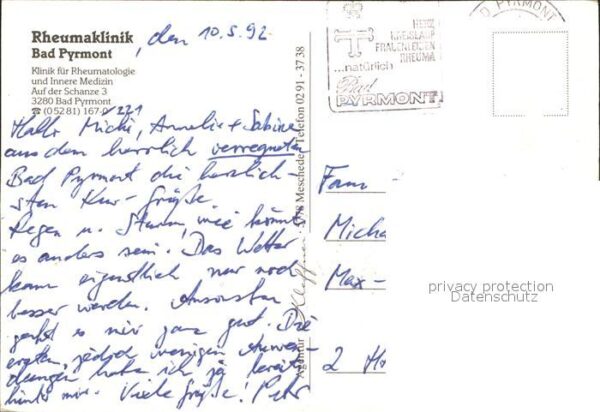 Rheumaklinik
Bad Pyrmont
, den 10.5.92
Klinik für Rheumatologie
und Innere Medizin
Auf der Schanze 3
3280 Bad Pyrmont
☎ (05281) 167-0/221
Hallo Michi, Annelie + Sabine
aus dem herrlich verregneten
Bad Pyrmont die herzlich-
sten Kur-Grüße.
Regen u. Sturm, wie könnte
es anders sein. Das Wetter
kann eigentlich nur noch
besser werden. Ansonsten
geht es mir ganz gut. Die
ersten, jedoch wenigen Anwen-
dungen habe ich ja bereits
hinter mir. Viele Grüße! Petr
HERZ
KREISLAUF
FRAUENLEIDEN
RHEUMA
...natürlich
Bad
PYRMONT
D PYRMONT
Agentur
5778 Meschede, Telefon 0291-3738
Fam
Micha
Max-
2 H
privacy protection
Datenschutz